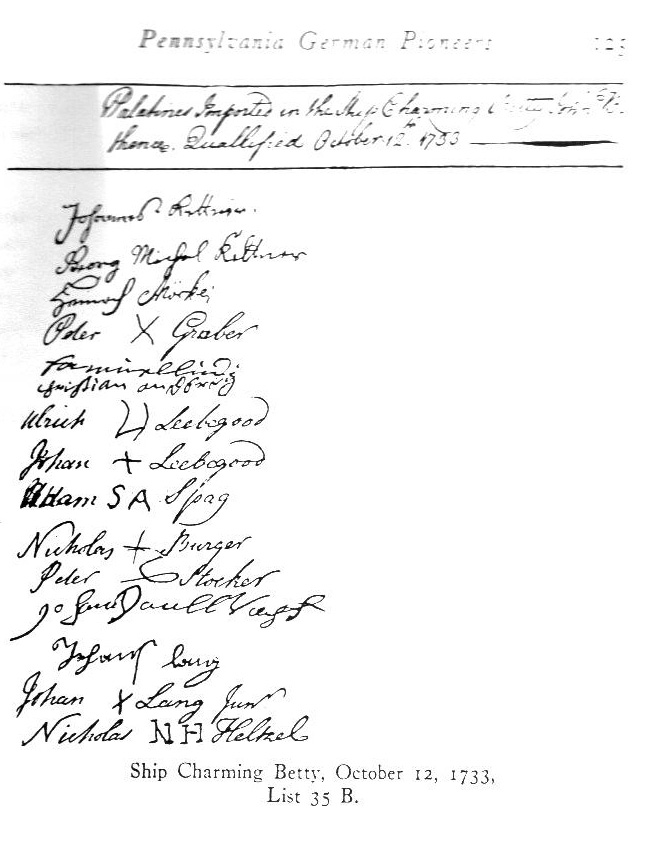 Pennsylvania German Pioneers 125
Palatines Imported in the Ship Charming
thence. Quallified October 12th. 1733
Johannes Kettner.
Georg Michal Kettner
Peter X Graber
Christian
Ulrich U Leebegood
Johan + Leebegood
Adam SA Spag
Nicholas + Burger
Peter Stocker
Johans lang
Johan X Lang Junr
Nicholas NH Heltzel
Ship Charming Betty, October 12, 1733,
List 35 B.